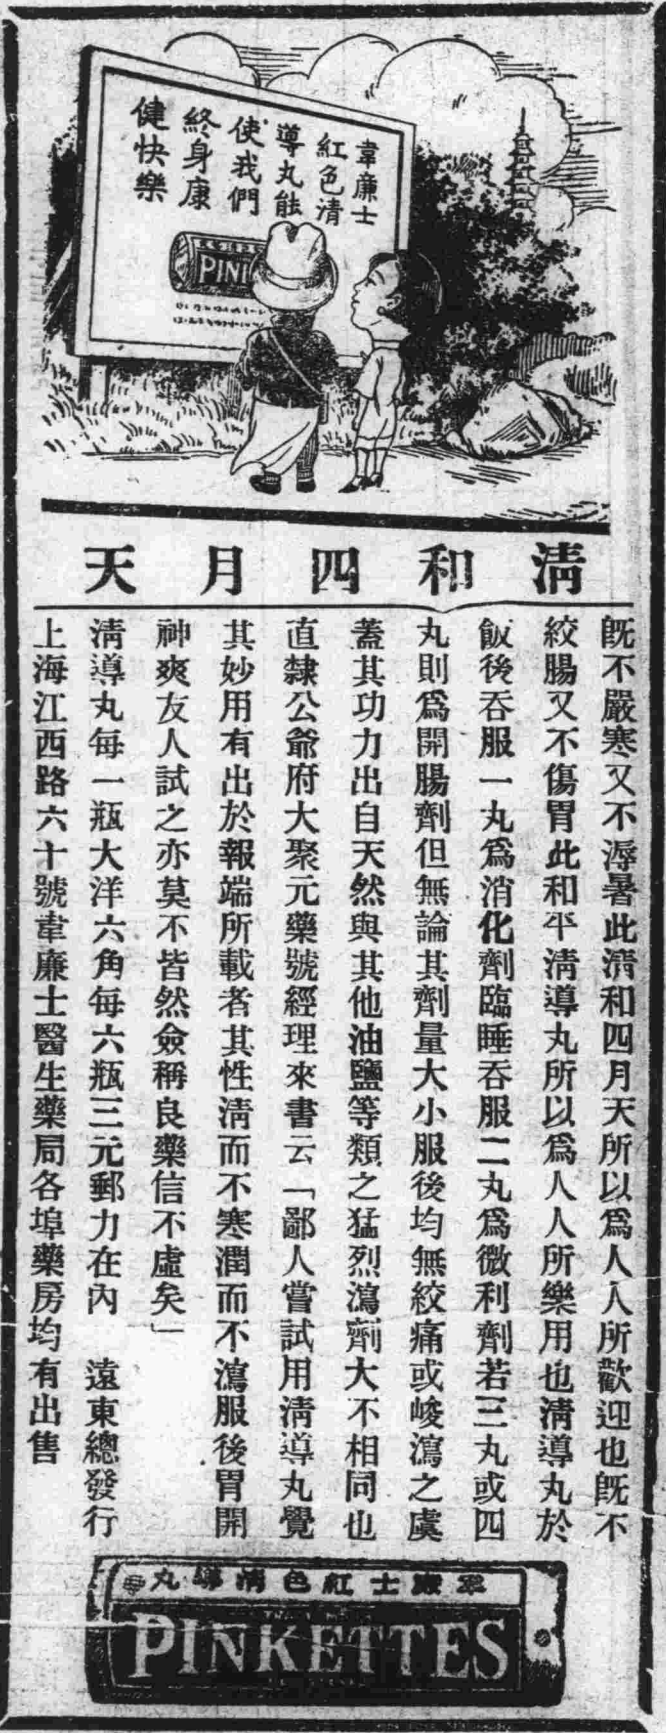 韋廉士
紅色清
導丸能
使我們
終身康
健快樂
PIN
清和四月天
既不嚴寒又不溽暑此清和四月天所以爲人人所歡迎也既不
絞腸又不傷胃此和平清導丸所以爲人人所樂用也清導丸於
飯後吞服一丸爲消化劑臨睡吞服二丸爲微利劑若三丸或四
丸則爲開腸劑但無論其劑量大小服後均無絞痛或峻瀉之虞
蓋其功力出自天然與其他油鹽等類之猛烈瀉劑大不相同也
直隸公爺府大聚元藥號經理來書云「鄙人嘗試用清導丸覺
其妙用有出於報端所載者其性清而不寒潤而不瀉服後胃開
神爽友人試之亦莫不皆然僉稱良藥信不虛矣」
清導丸每一瓶大洋六角每六瓶三元郵力在內 遠東總發行
上海江西路六十號韋廉士醫生藥局各埠藥房均有出售
韋廉士紅色清導丸
PINKETTES